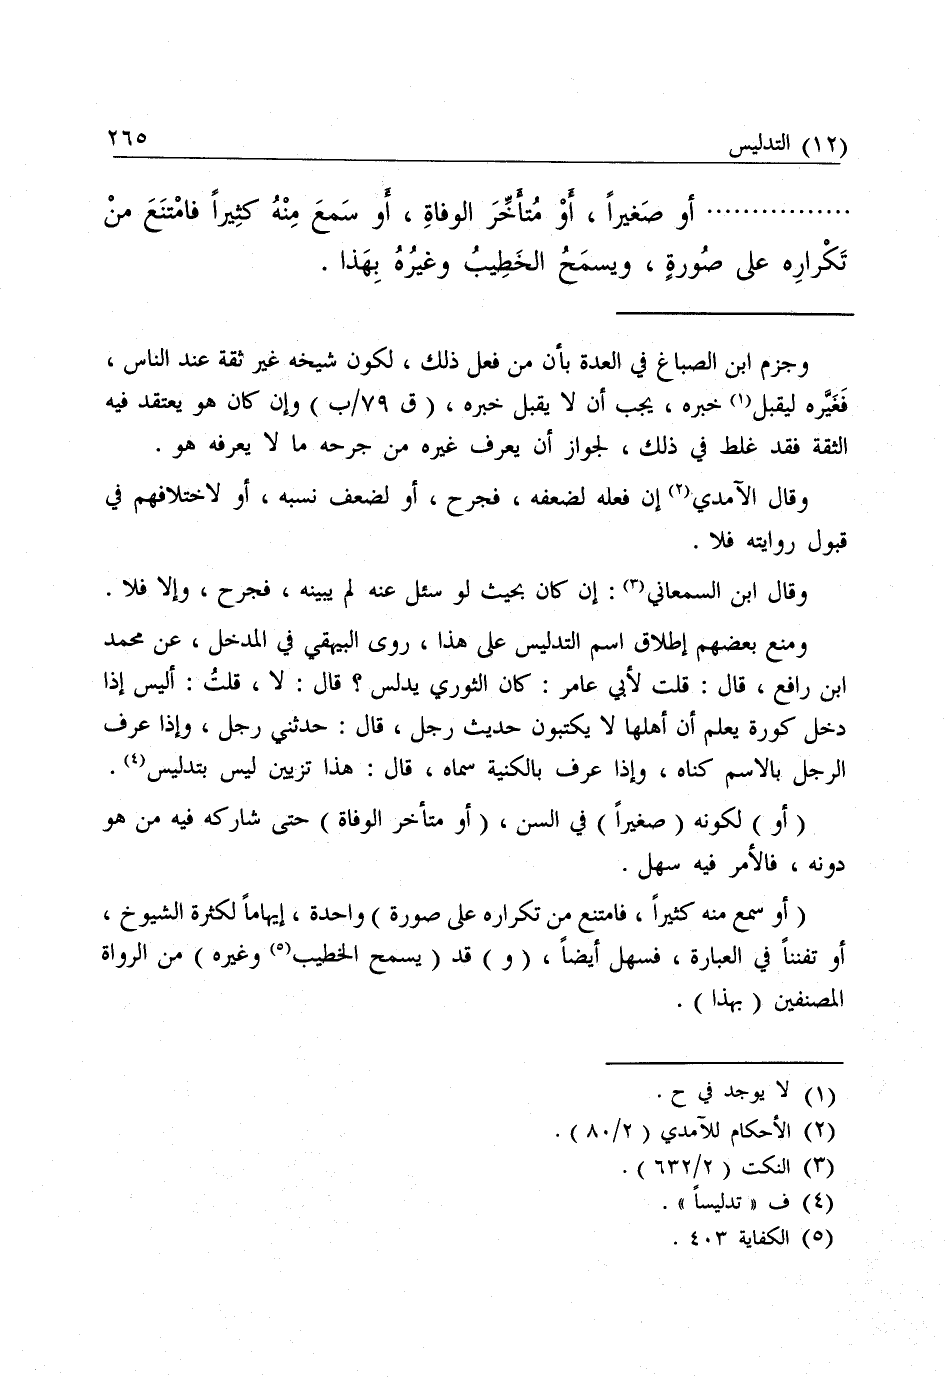 (١٢) التدليس ٢٦٥
................ أو صَغيراً ، أَوْ مُتأَخِّرَ الوفاةِ ، أَو سَمعَ مِنْهُ كثِيراً فامْتنَعَ منْ
تَكْرارِه على صُورةٍ ، ويسمَحُ الخَطِيبُ وغيرُهُ بِهَذا .
وجزم ابن الصباغ في العدة بأن من فعل ذلك ، لكون شيخه غير ثقة عند الناس ،
فَغَيَّره ليقبل(١) خبره ، يجب أن لا يقبل خبره ، ( ق ٧٩/ب ) وإن كان هو يعتقد فيه
الثقة فقد غلط في ذلك ، لجواز أن يعرف غيره من جرحه ما لا يعرفه هو .
وقال الآمدي(٢) إن فعله لضعفه ، فجرح ، أو لضعف نسبه ، أو لاختلافهم في
قبول روايته فلا .
وقال ابن السمعاني(٣) : إن كان بحيث لو سئل عنه لم يبينه ، فجرح ، وإلا فلا .
ومنع بعضهم إطلاق اسم التدليس على هذا ، روى البيهقي في المدخل ، عن محمد
ابن رافع ، قال : قلت لأبي عامر : كان الثوري يدلس ؟ قال : لا ، قلتُ : أليس إذا
دخل كورة يعلم أن أهلها لا يكتبون حديث رجل ، قال : حدثني رجل ، وإذا عرف
الرجل بالاسم كناه ، وإذا عرف بالكنية سماه ، قال : هذا تزيين ليس بتدليس(٤) .
( أو ) لكونه ( صغيراً ) في السن ، ( أو متأخر الوفاة ) حتى شاركه فيه من هو
دونه ، فالأمر فيه سهل .
( أو سمع منه كثيراً ، فامتنع من تكراره على صورة ) واحدة ، إيهاماً لكثرة الشيوخ ،
أو تفنناً في العبارة ، فسهل أيضاً ، ( و ) قد ( يسمح الخطيب(٥) وغيره ) من الرواة
المصنفين ( بهذا ) .
(١) لا يوجد في ح .
(٢) الأحكام للآمدي ( ٨٠/٢ ) .
(٣) النكت ( ٦٣٢/٢ ) .
(٤) ف « تدليساً » .
(٥) الكفاية ٤٠٣ .